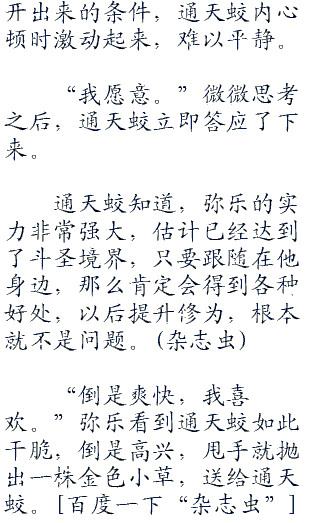 开出来的条件，通天蛟内心
顿时激动起来，难以平静。
“我愿意。”微微思考
之后，通天蛟立即答应了下
来。
通天蛟知道，弥乐的实
力非常强大，估计已经达到
了斗圣境界，只要跟随在他
身边，那么肯定会得到各种
好处，以后提升修为，根本
就不是问题。(杂志虫)
“倒是爽快，我喜
欢。”弥乐看到通天蛟如此
干脆，倒是高兴，甩手就抛
出一株金色小草，送给通天
蛟。[百度一下“杂志虫”]